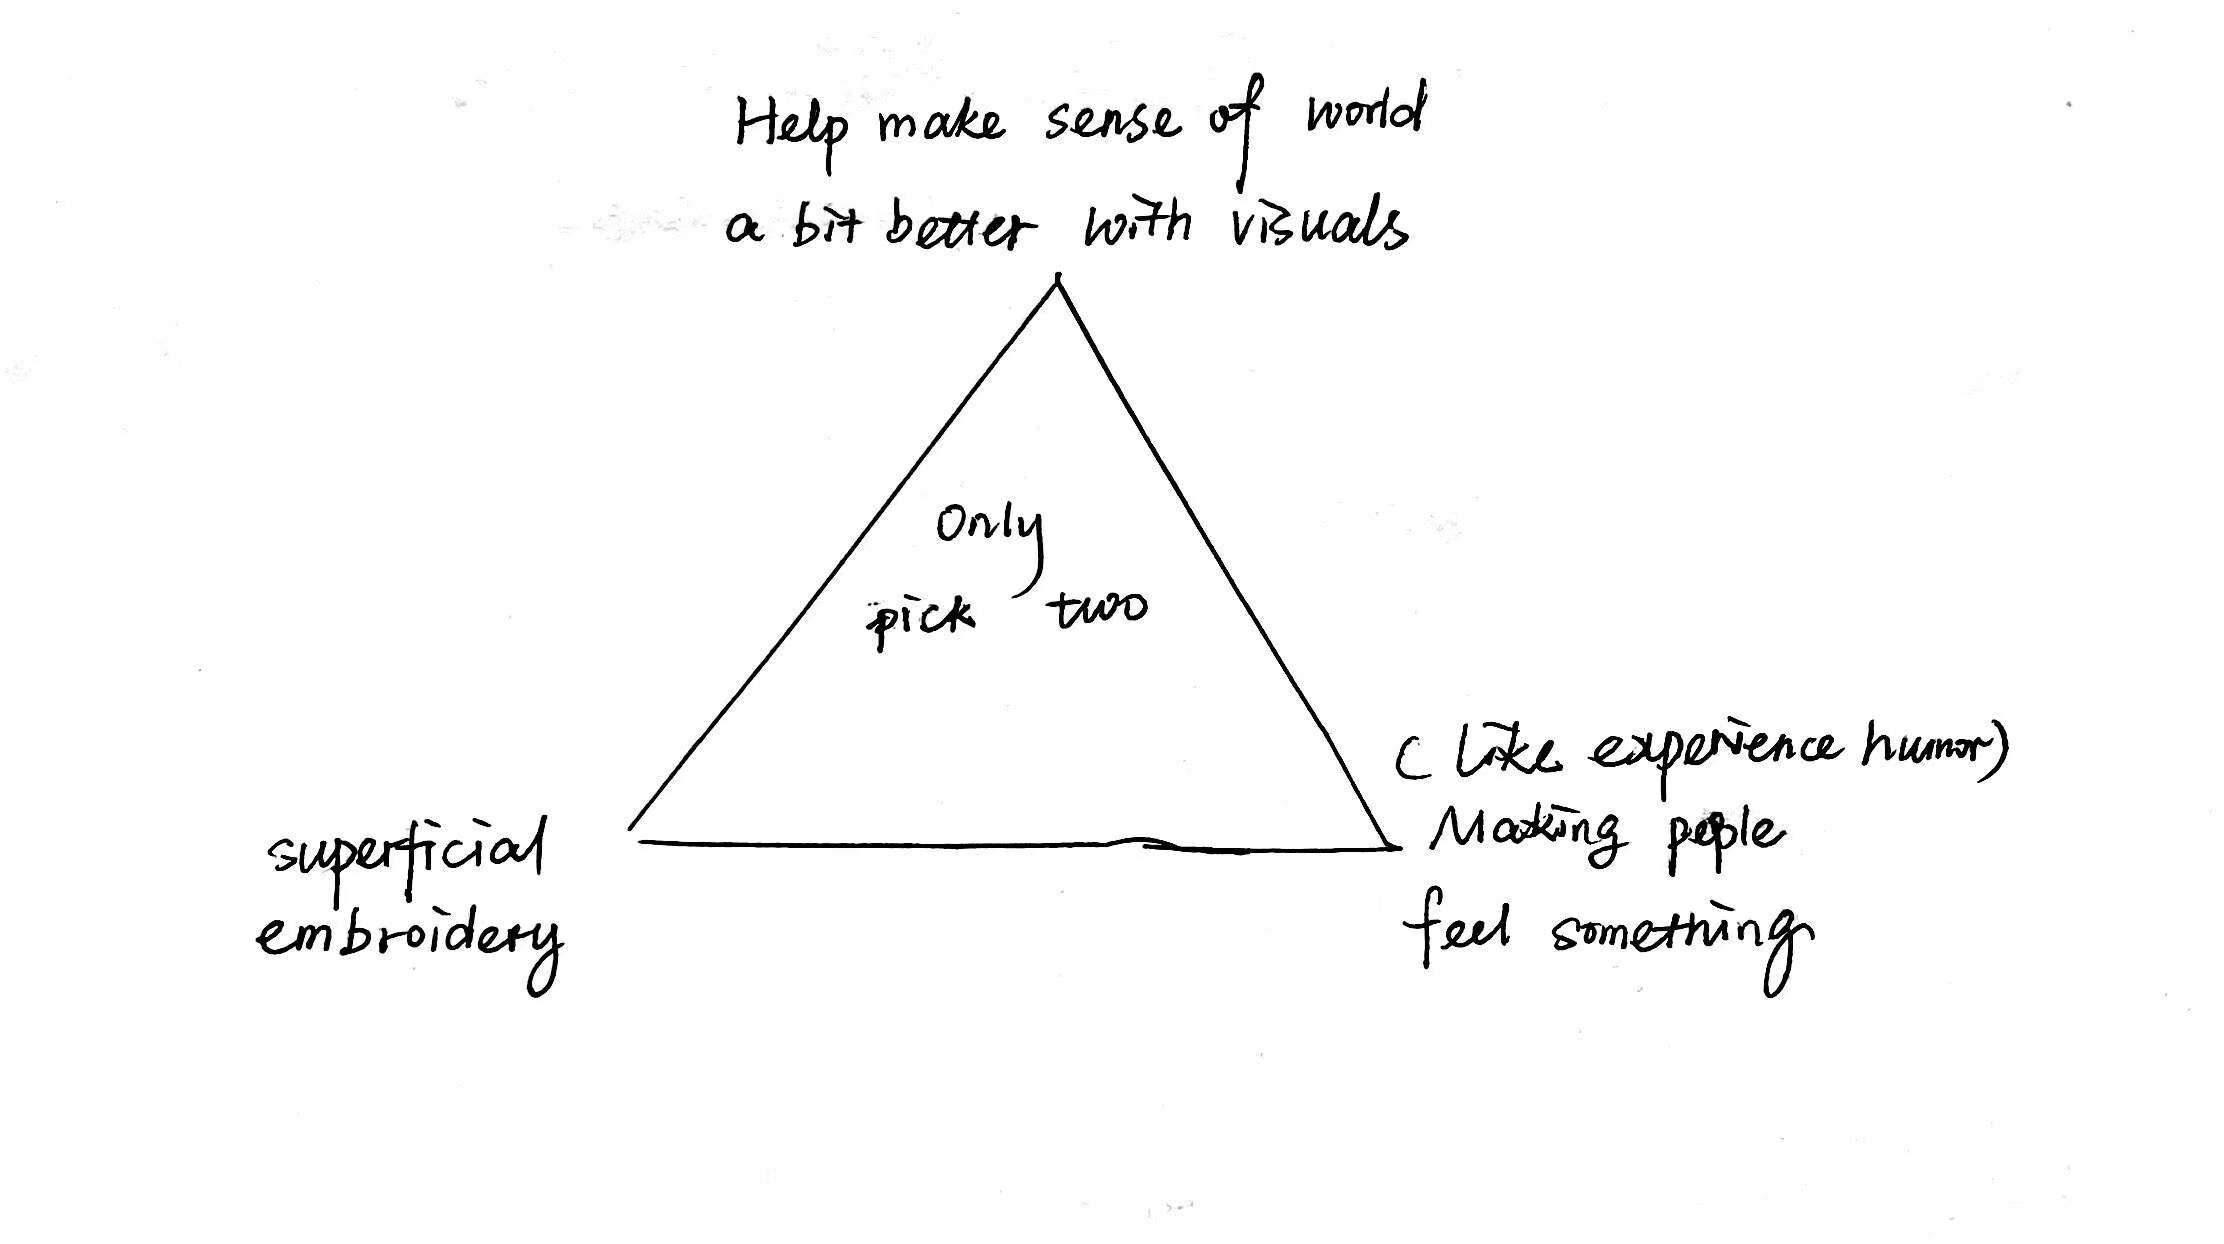 Help make sense of world
a bit better with visuals
Only
pick two
(like experience humor)
Making people
feel something
superficial
embroidery